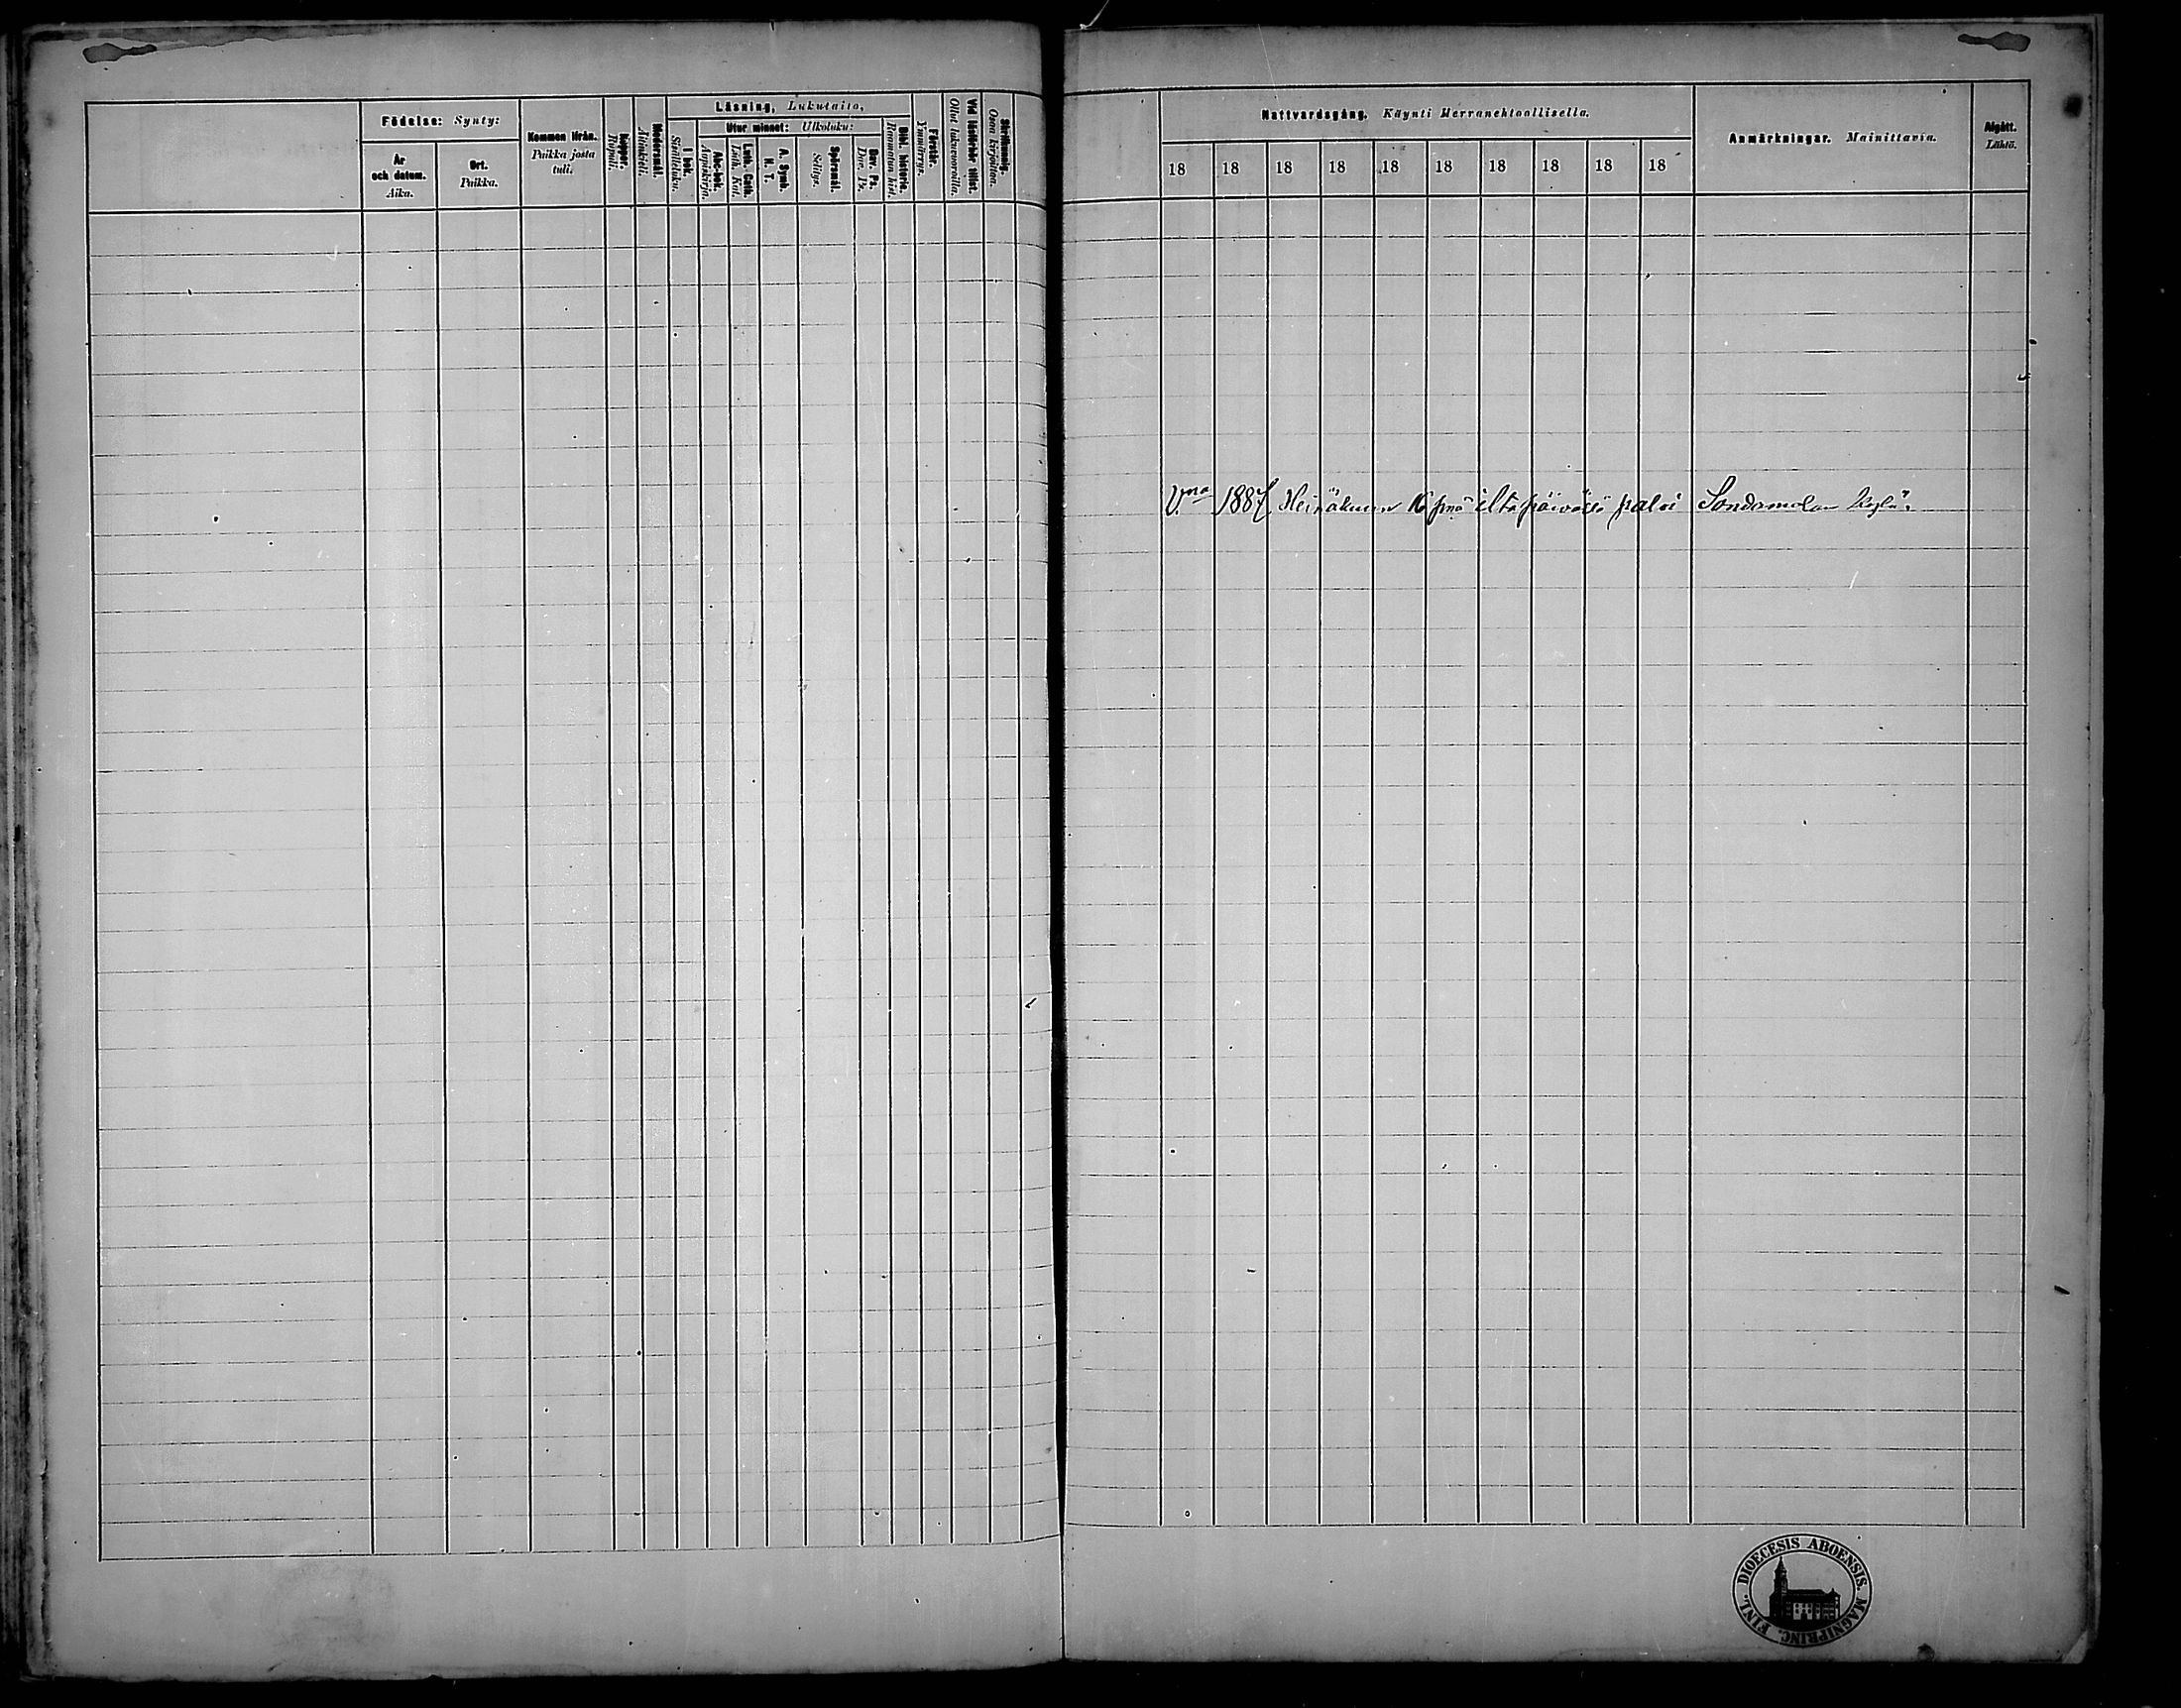 Födelse: Synty:
År och datum. Aika.
Ort. Paikka.
Kommen ifrån. Paikka josta tuli.
Koppor. Rupuli.
Modersmål. Äitinkieli.
Läsning, Lukutaito,
I bok. Sisälleluku.
Utur minnet: Ulkoluku:
Abc-bok. Aapiskirja.
Luth. Cath. Luth. Kat.
A. Symb. H. T.
Spörsmål. Selitys.
Dav. Ps. Dav. Ps.
Bibl. historia. Raamatun hist.
Förstår. Ymmärrys.
Vid läsförhör tillst. Ollut lukuvuoroilla.
Skrifkunnig. Osaa kirjoittaa.
Nattvardsgång. Käynti Herranehtoollisella.
18 18 18 18 18 18 18 18 18 18
Anmärkningar. Mainittavia.
Afgått. Lähtö.
V:na 1887 Heinäkuun 16 pnä iltapäivällä paloi Sondamolan kylä.
DIOECESIS ABOENSIS. MAGNIPRINC. FINL.